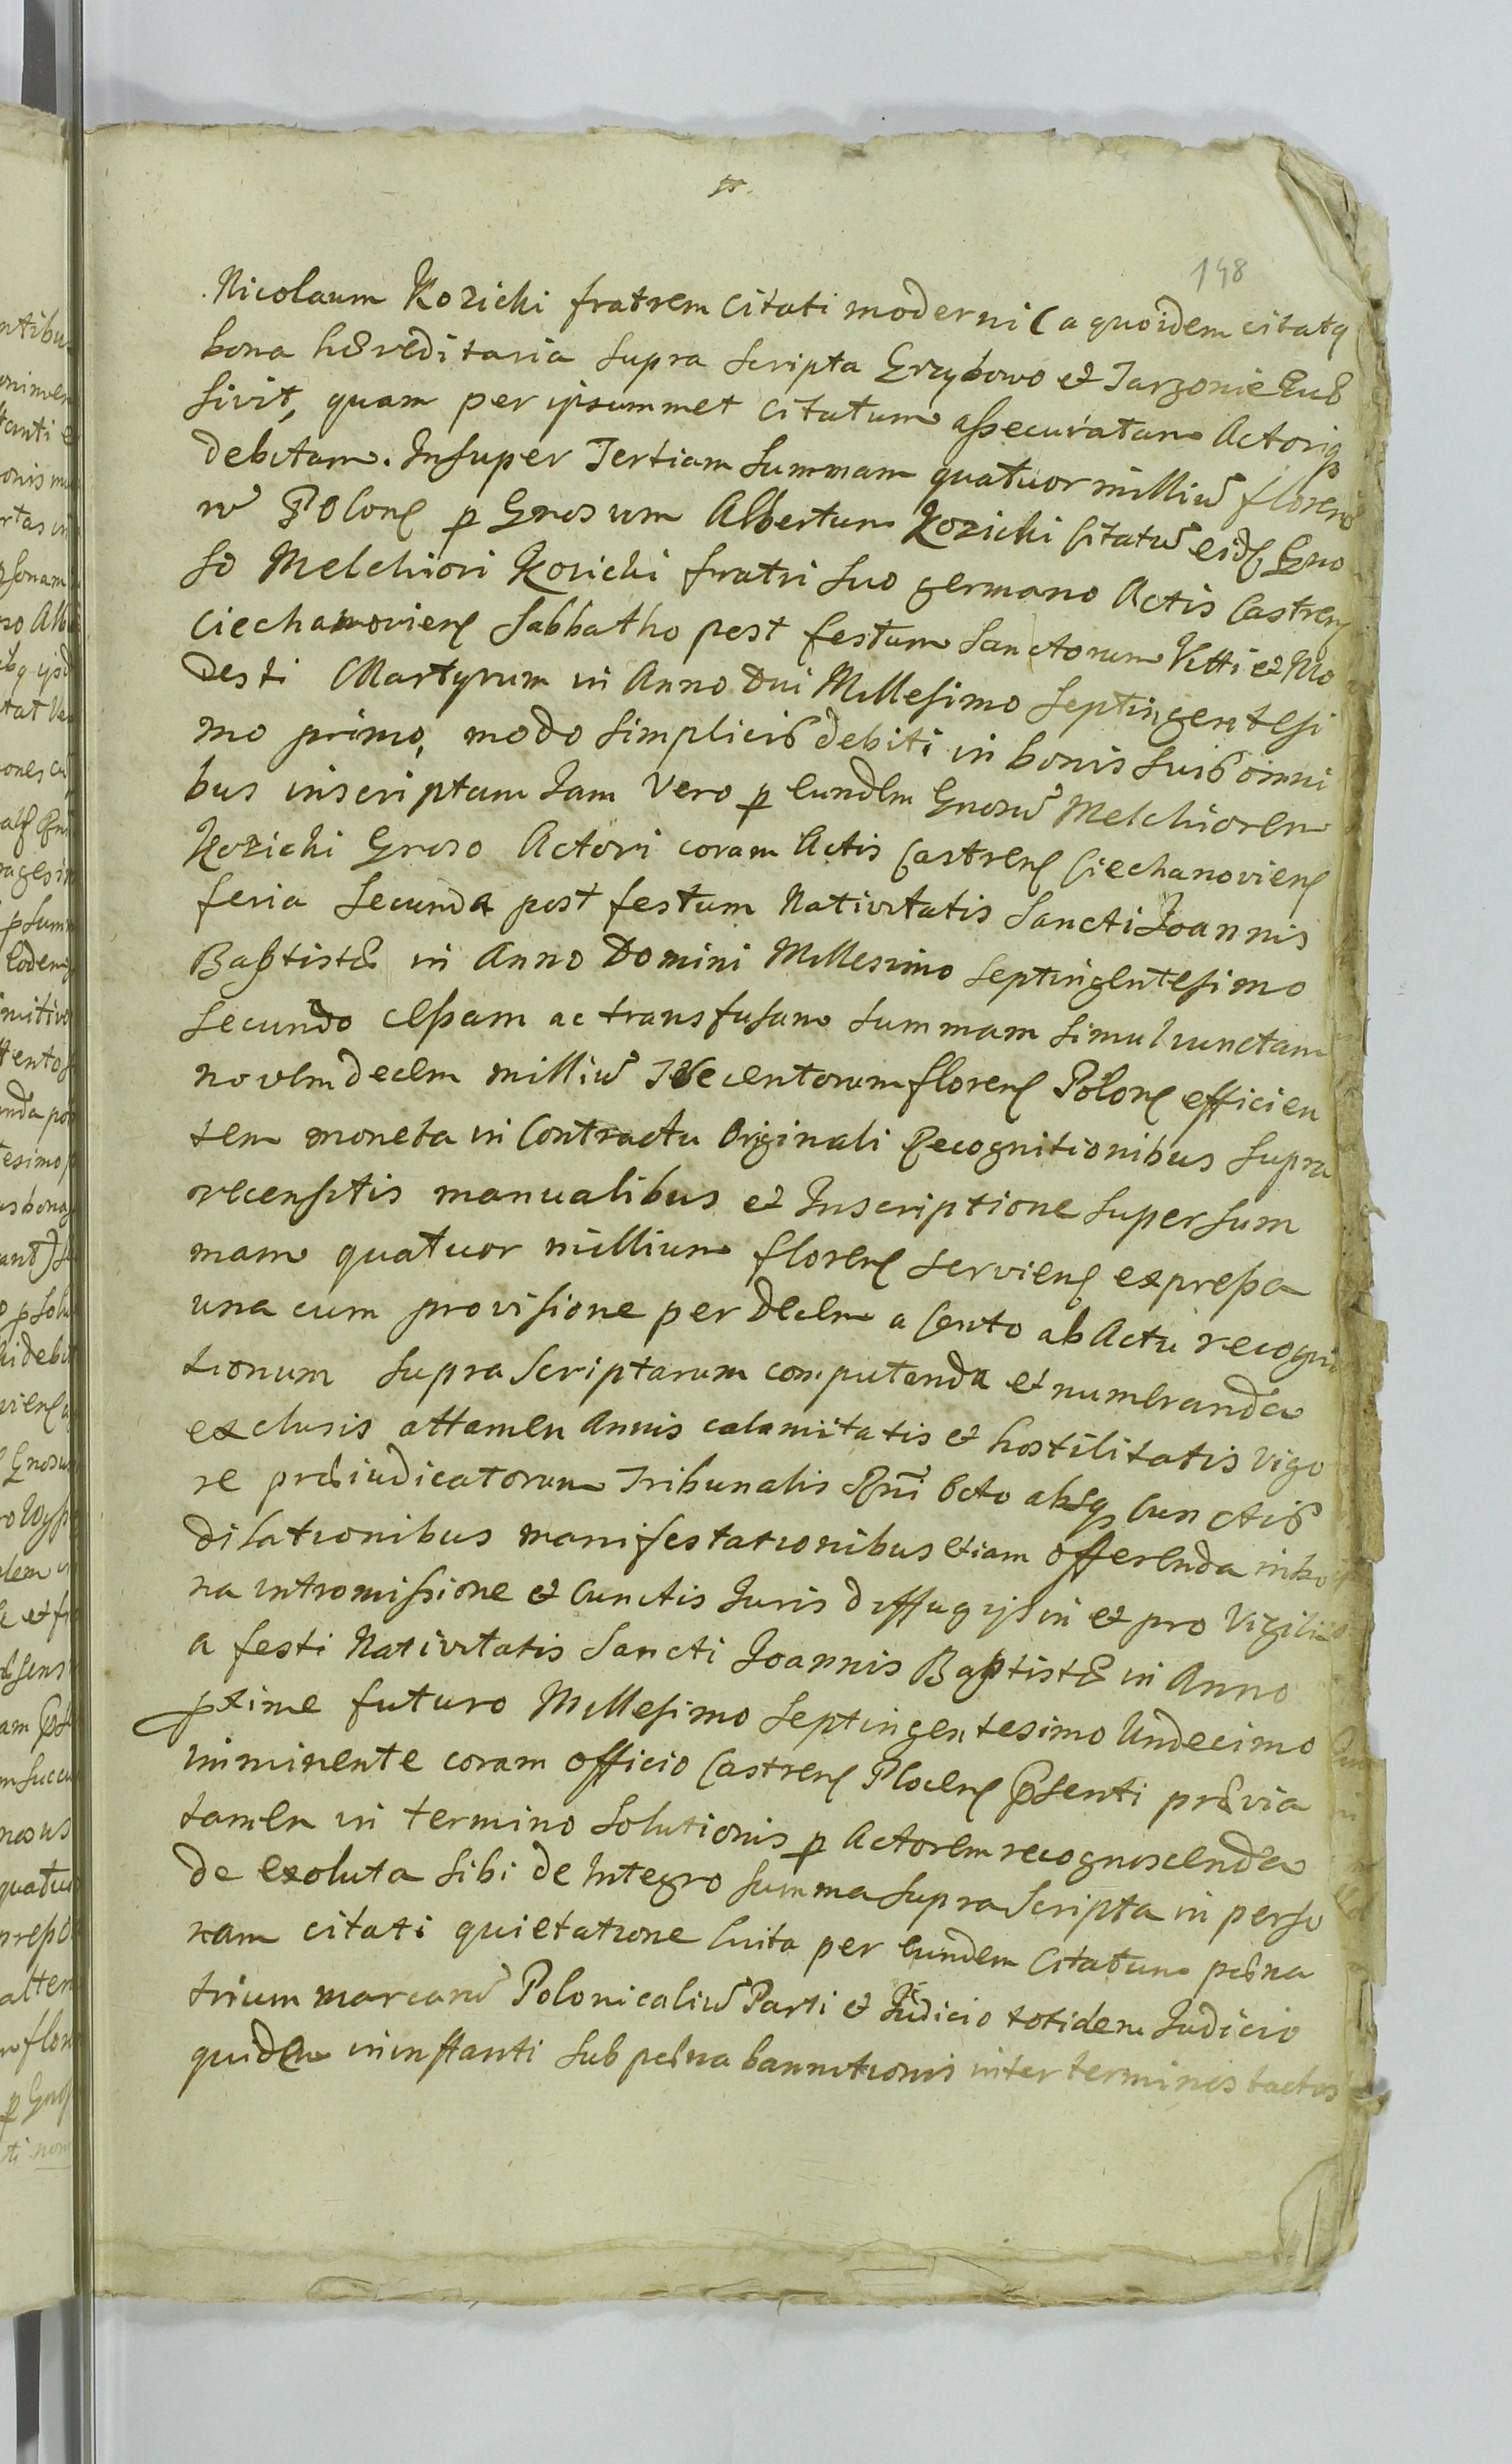 148
Nicolaum Kozicki fratrem citati moderni (a quo idem citatq
bona hæreditaria supra scripta Grzybowo et Tarzonie
sivit, quam per ipsummet citatum assecuratam Actoriq
debitam. Insuper Tertiam summam quatuor milliũ floren
rũ Polon p Gnosum Albertum Kozicki citatũ eid Gno
so Melchiori Kozicki fratri suo germano Actis Castren
Ciechanovien Sabbatho post festum Sanctorum Vitti et Mo
desti Martyrum in Anno Dni Millesimo Septingentesi
mo primo, modo simplicis debiti in bonis suis omni
bus inscriptam Jam vero p eundem Gnosũ Melchiorem
Kozicki Gnoso Actori coram Actis Castren Ciechanovien
feria secunda post festum Nativitatis Sancti Joannis
Baptistæ in Anno Domini Millesimo Septingentesimo
secundo cessam ac transfusam summam simul iunctam
novemdecem milliũ Trecentorum floren Polon efficien
tem moneta in Contractu Originali Recognitionibus supra
recensitis manualibus et Inscriptione super sum
mam quatuor millium floren servien expressa
una cum provisione per decem a Cento ab Actu recogni
tionum supra scriptarum computanda et numeranda
exclusis attamen annis calamitatis et hostilitatis vigo
re præiudicatorum Tribunalis Rni octo absq Cunctis
dilationibus manifestationibus etiam offerenda
na intromissione et Cunctis Juris diffugijs in et pro Vigilia
a festi Nativitatis Sancti Joannis Baptistæ in Anno
pxime futuro Millesimo Septingentesimo Undecimo
imminente coram officio Castren Plocen Psenti prævia
tamen in termino solutionis p Actorem recognoscenda
de exoluta sibi de Integro summa supra scripta in perso
nam citati quietatione luita per eundem Citatum pœna
trium marcarũ Polonicaliũ Parti et Judicio totidem Judicio
quidem in instanti sub pœna bannitionis inter terminos tactos